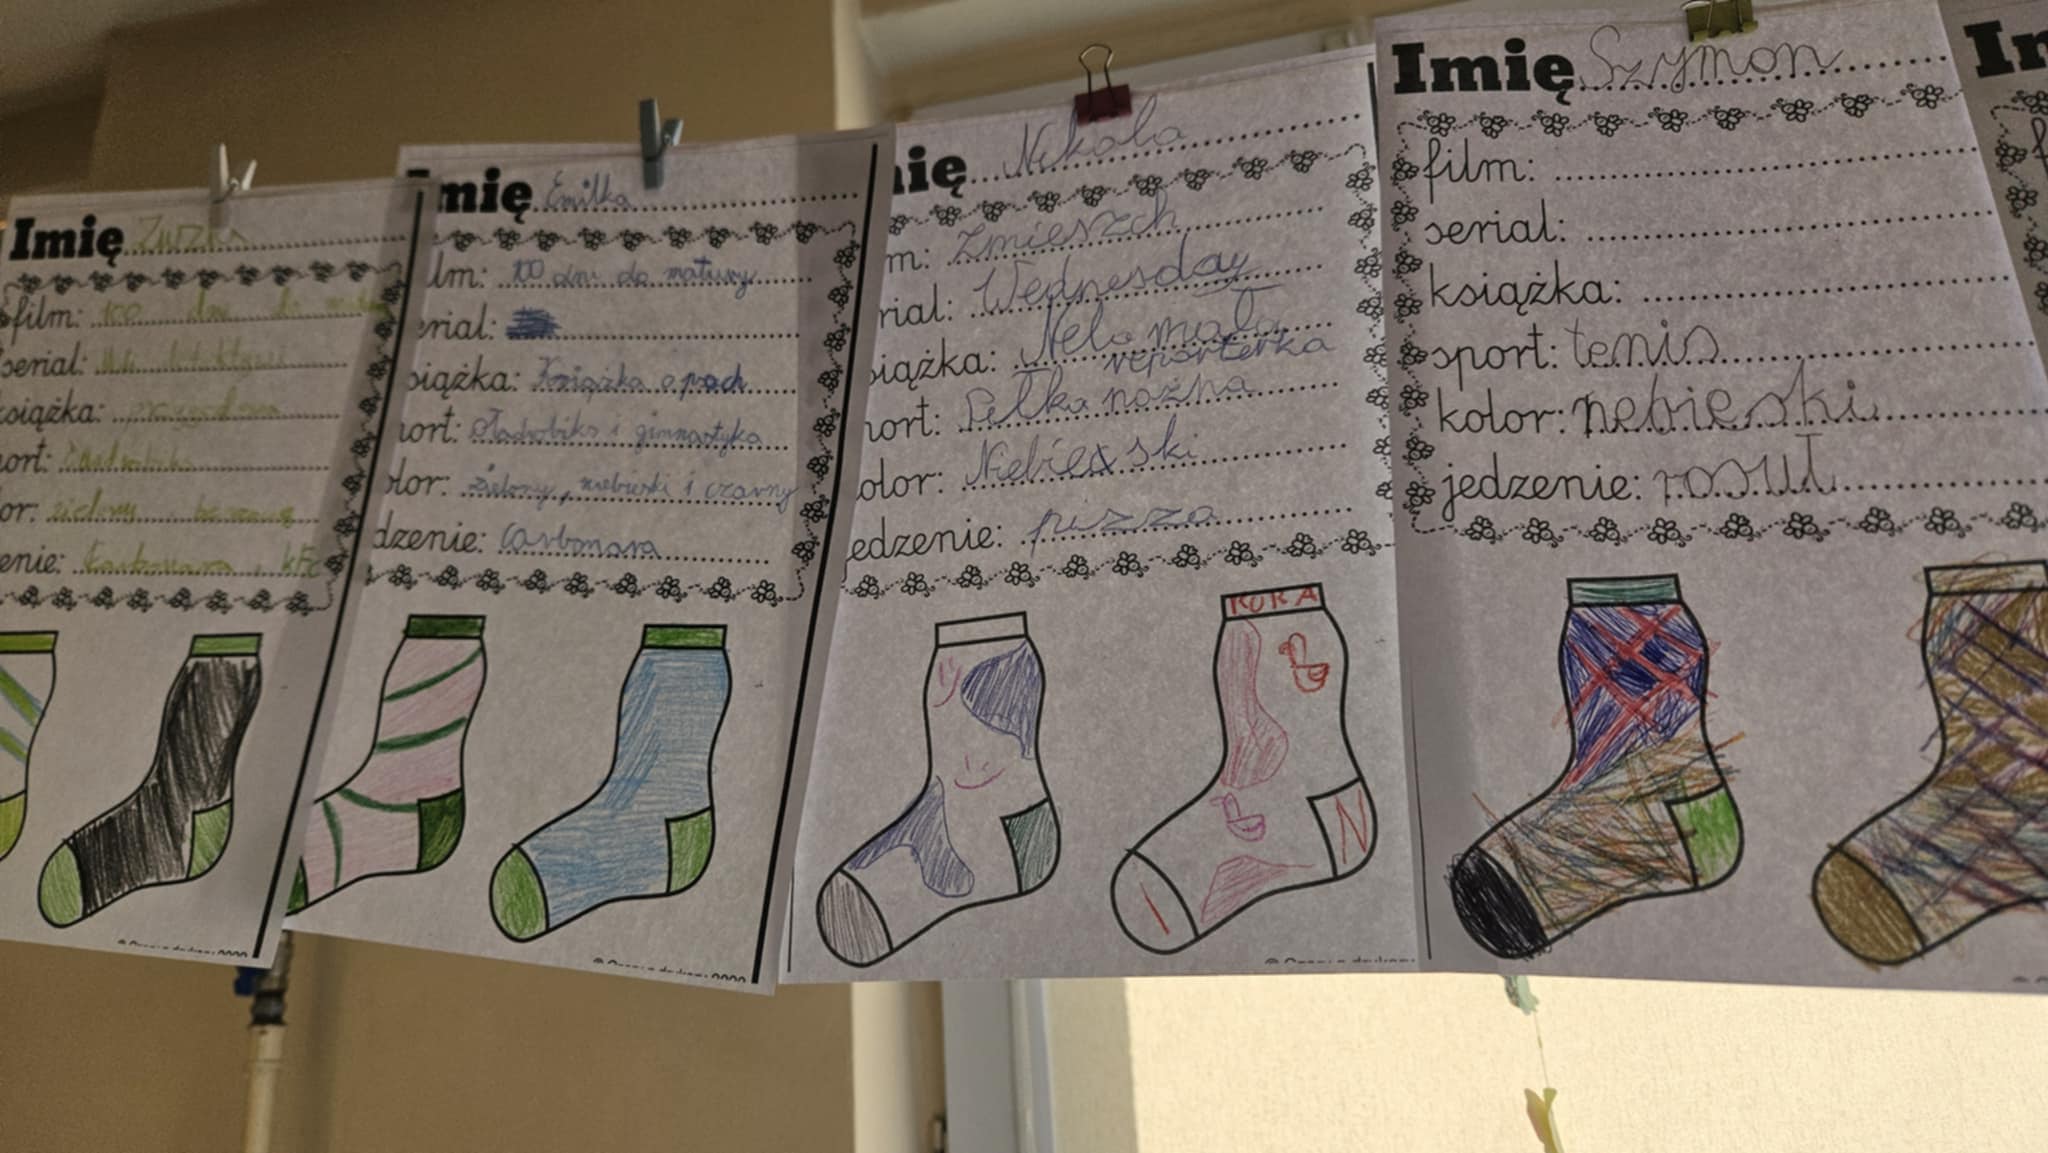 Imię Zuzka
film: 100 dni do
serial:
książka:
ort:
or: zielony
enie: Carbonara, kfc
mię Emilka
lm: 100 dni do matury
erial:
siążka: Książka o psach
ort: i gimnastyka
olor: zielony, niebieski i czarny
dzenie: Carbonara
mię Nikola
m: Zmieszch
rial: Wednesday
siążka: Nela mała
reporterka
ort: Piłka nożna
olor: Niebieski
edzenie: pizza
KUKA
N
Imię Szymon
film:
serial:
książka:
sport: tenis
kolor: niebieski
jedzenie: rosuł
Im